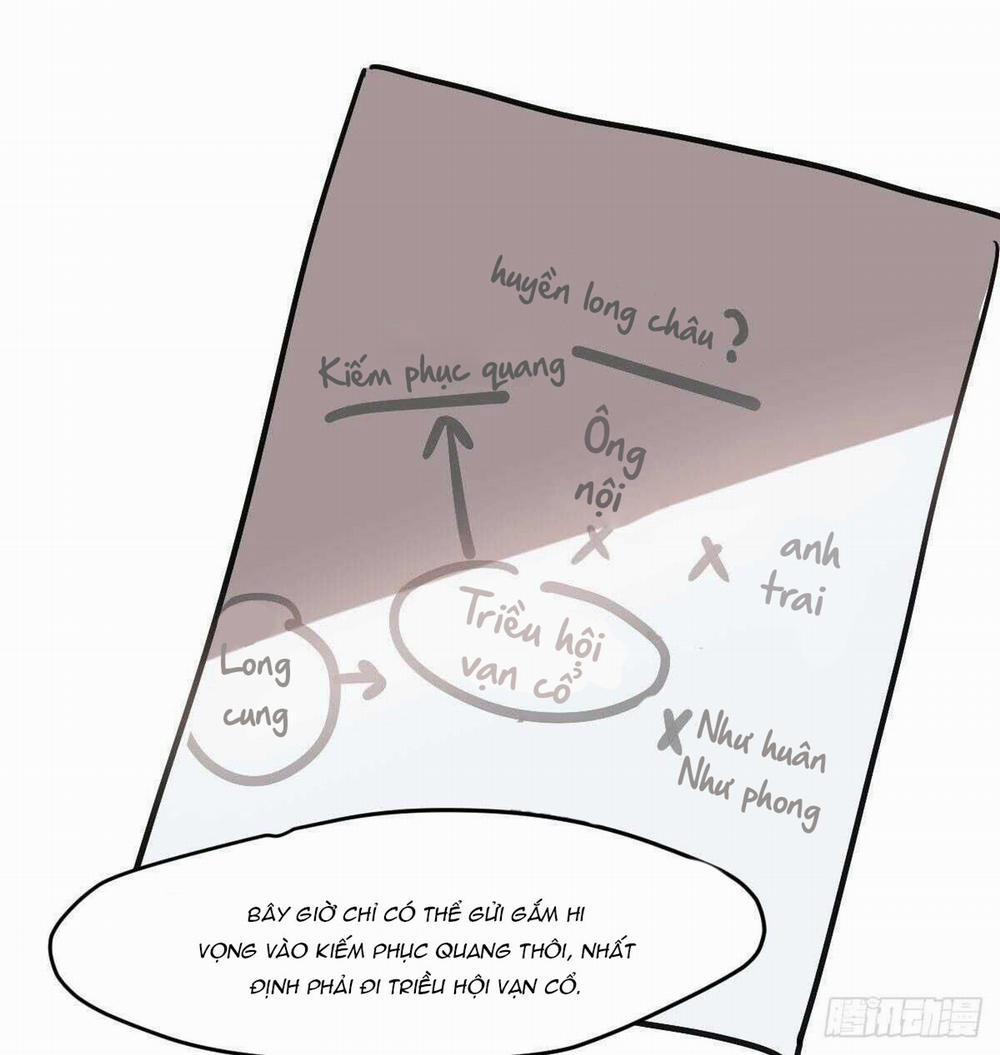 huyền long châu?
Kiếm phục quang
Ông
nội
anh
trai
Triều hội
vạn cổ
Long
cung
Như huân
Như phong
BÂY GIỜ CHỈ CÓ THỂ GỬI GẮM HI
VỌNG VÀO KIẾM PHỤC QUANG THÔI, NHẤT
ĐỊNH PHẢI ĐI TRIỀU HỘI VẠN CỔ.
腾讯动漫